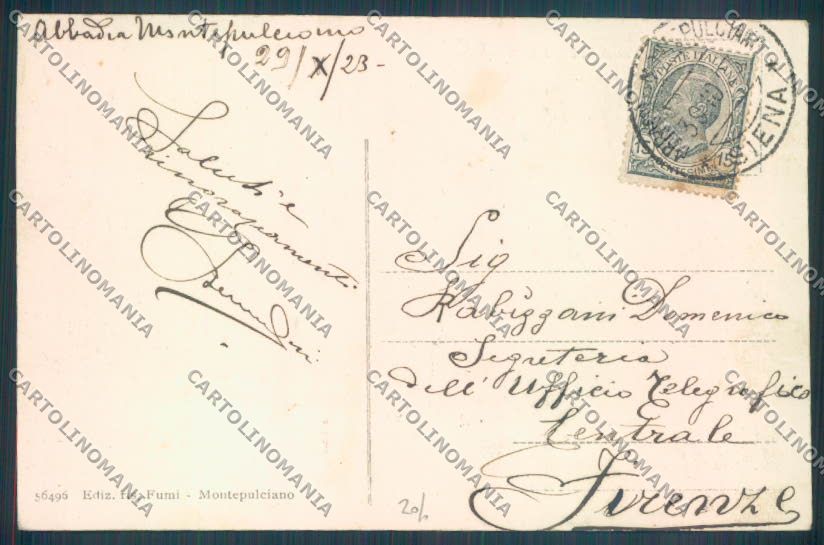 Abbadia Montepulciano
29/X/23-
Saluti e
ringraziamenti
PULCIANO
SIENA
POSTE ITALIANE
CENTESIMI 15
Sig
Rabizzani Domenico
Segreteria
dell' Ufficio Telegrafico
Centrale
Firenze
56496 Ediz. Fumi - Montepulciano
20/
CARTOLINOMANIA